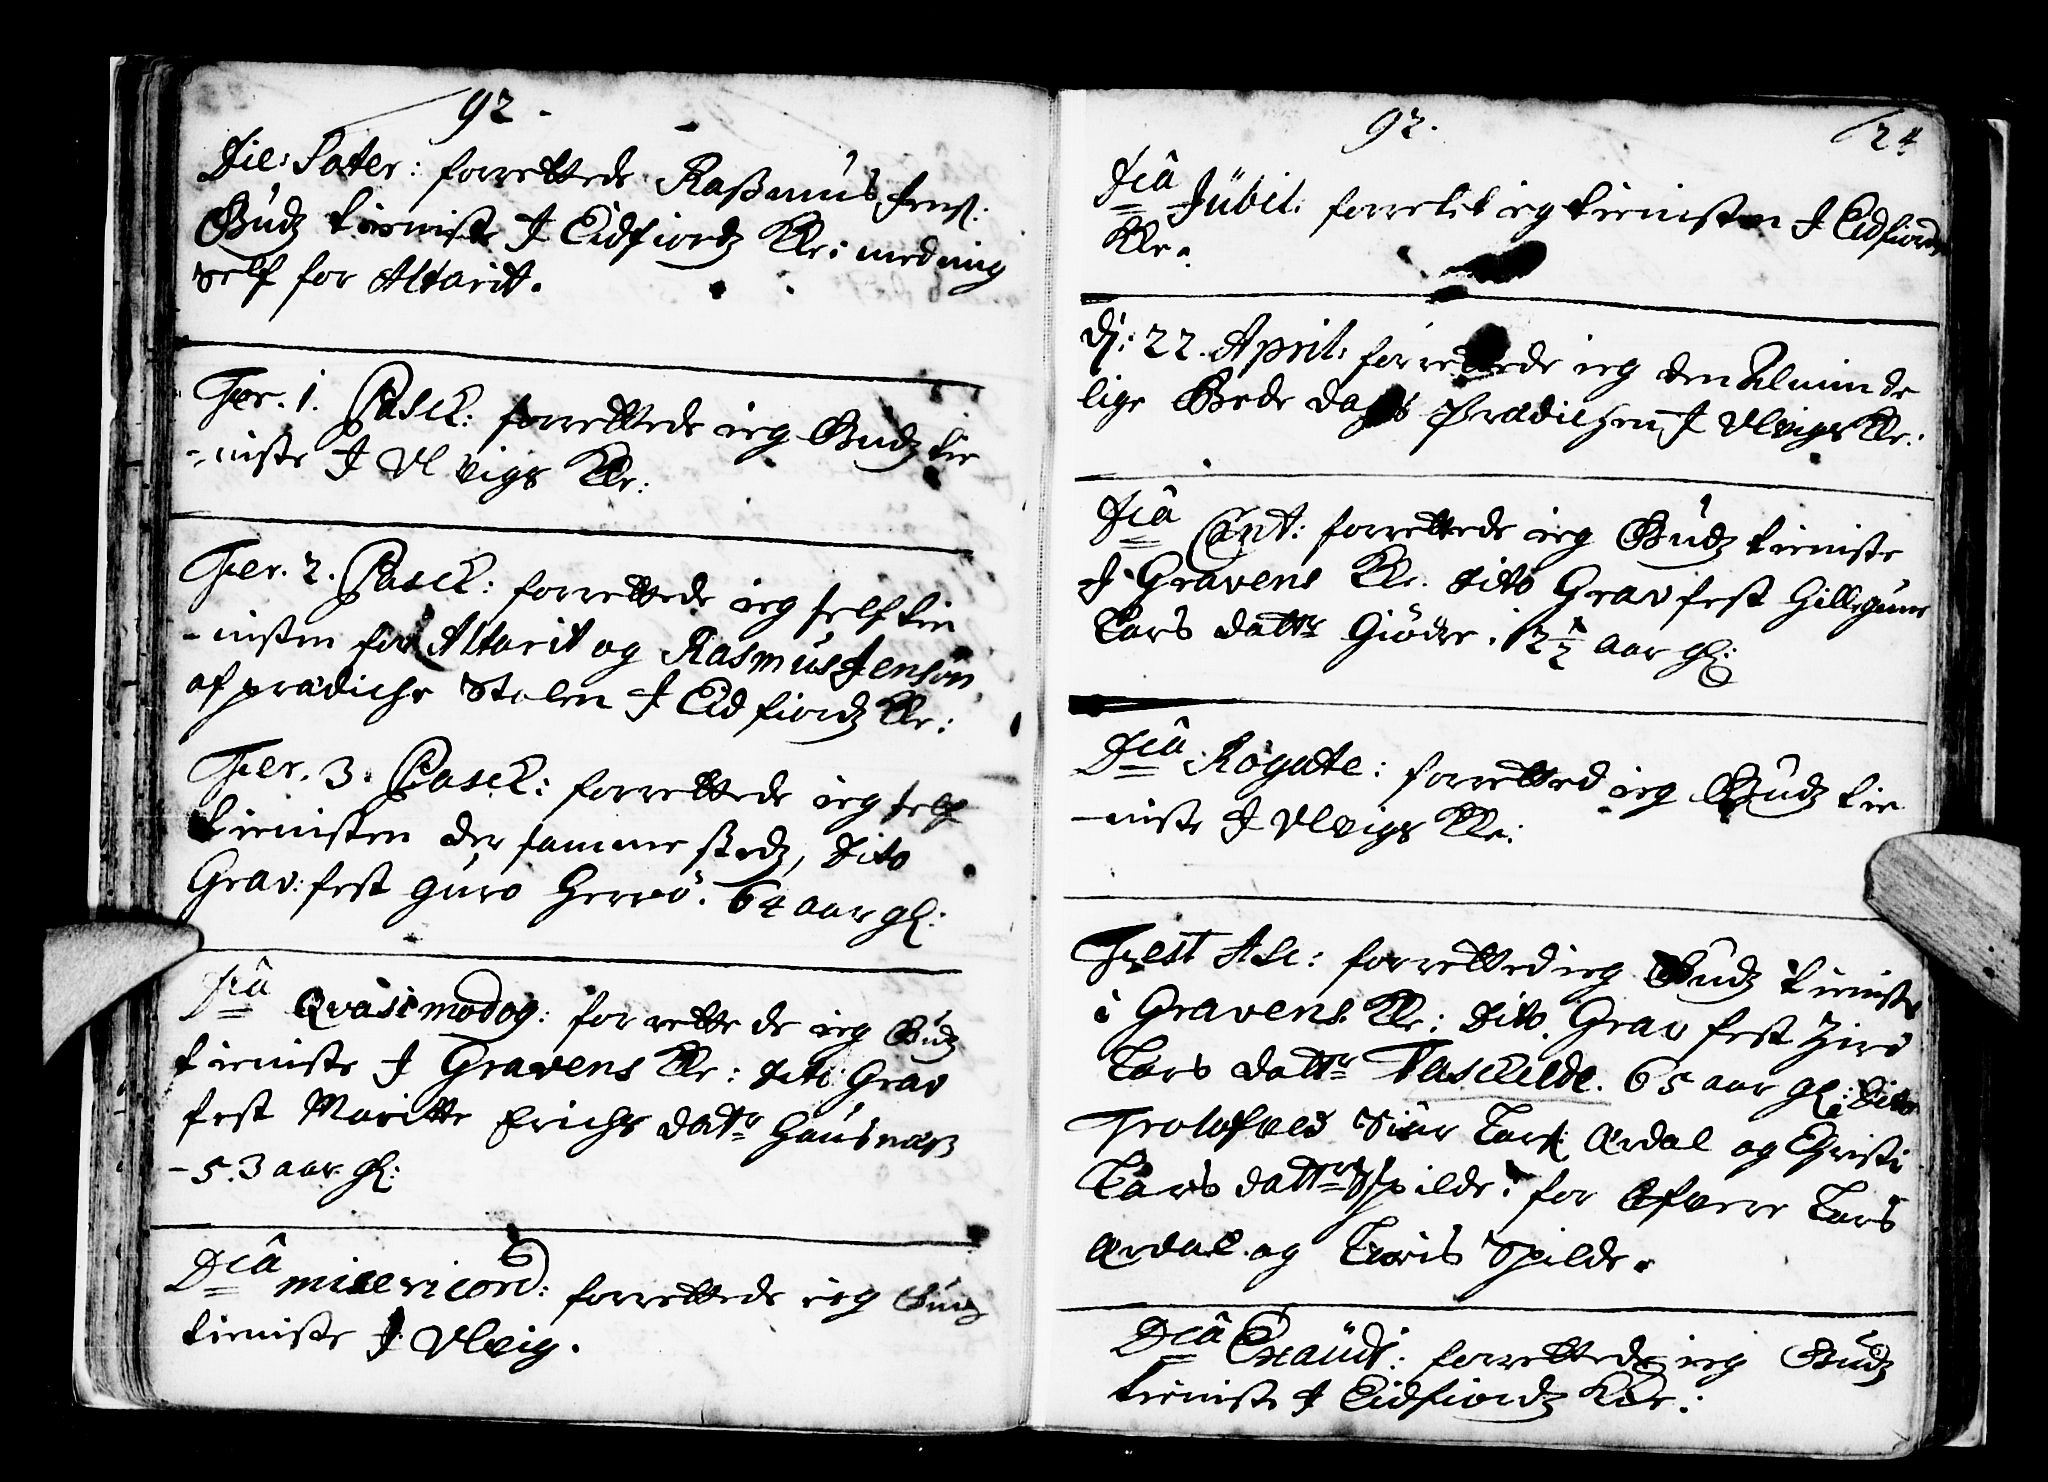 92.
Die: Sater: forrettede Rasmus Jens:
Gudz tieniste J Eidfiordz Kle: med mig
self for Altarit.
Fer. 1. Pasch: forrettede ieg Gudz tie
-niste J Vlvigs Kle:
Fer. 2. Pasch: forrettede ieg self tie
-nisten for Altarit og Rasmus Jenson
af prædiche Stolen J Eidfiordz Kle:
Fer. 3. Pasch: forrettede ieg self
tienisten der samme stedz, dito
Grav: fest Guro Herrø. 64 aar gl:
Dcâ Qvasimodog: forrettede ieg Gudz
tieniste J Gravens Kle: dito Grav
fest Maritte Erichs datr Hausnæs
-53 aar gl:
Dcâ misericord: forrettede ieg Gudz
tieniste J Vlvig.
92. 24
Dcâ Jubil: forrettet ieg tienisten J Eidfiordz
Kle.
dj: 22. April: forrettede ieg den Alminde
lige Bede dags Prædichen J Vlvigs Kle:
Dcâ Cant: forrettede ieg Gudz tieniste
J Gravens Kle. dito Grav fest Gillegunne
Lars dattr Giødre. 12 1/2 aar gl:
Dcâ Rogate: forretted ieg Gudz tie
-niste J Vlvigs Kle:
Fest Asc: forretted ieg Gudz tieniste
i Gravens Kle: Dito. Grav fest
Lars dattr 65 aar gl: Dito
Trolofved Siur Lars: Ærdal og Christi
Lars dattr Spilde. for Lars
Ærdal og Spilde.
Dcâ Exaudi: forrettede ieg Gudz
tieniste J Eidfiordz Kle: